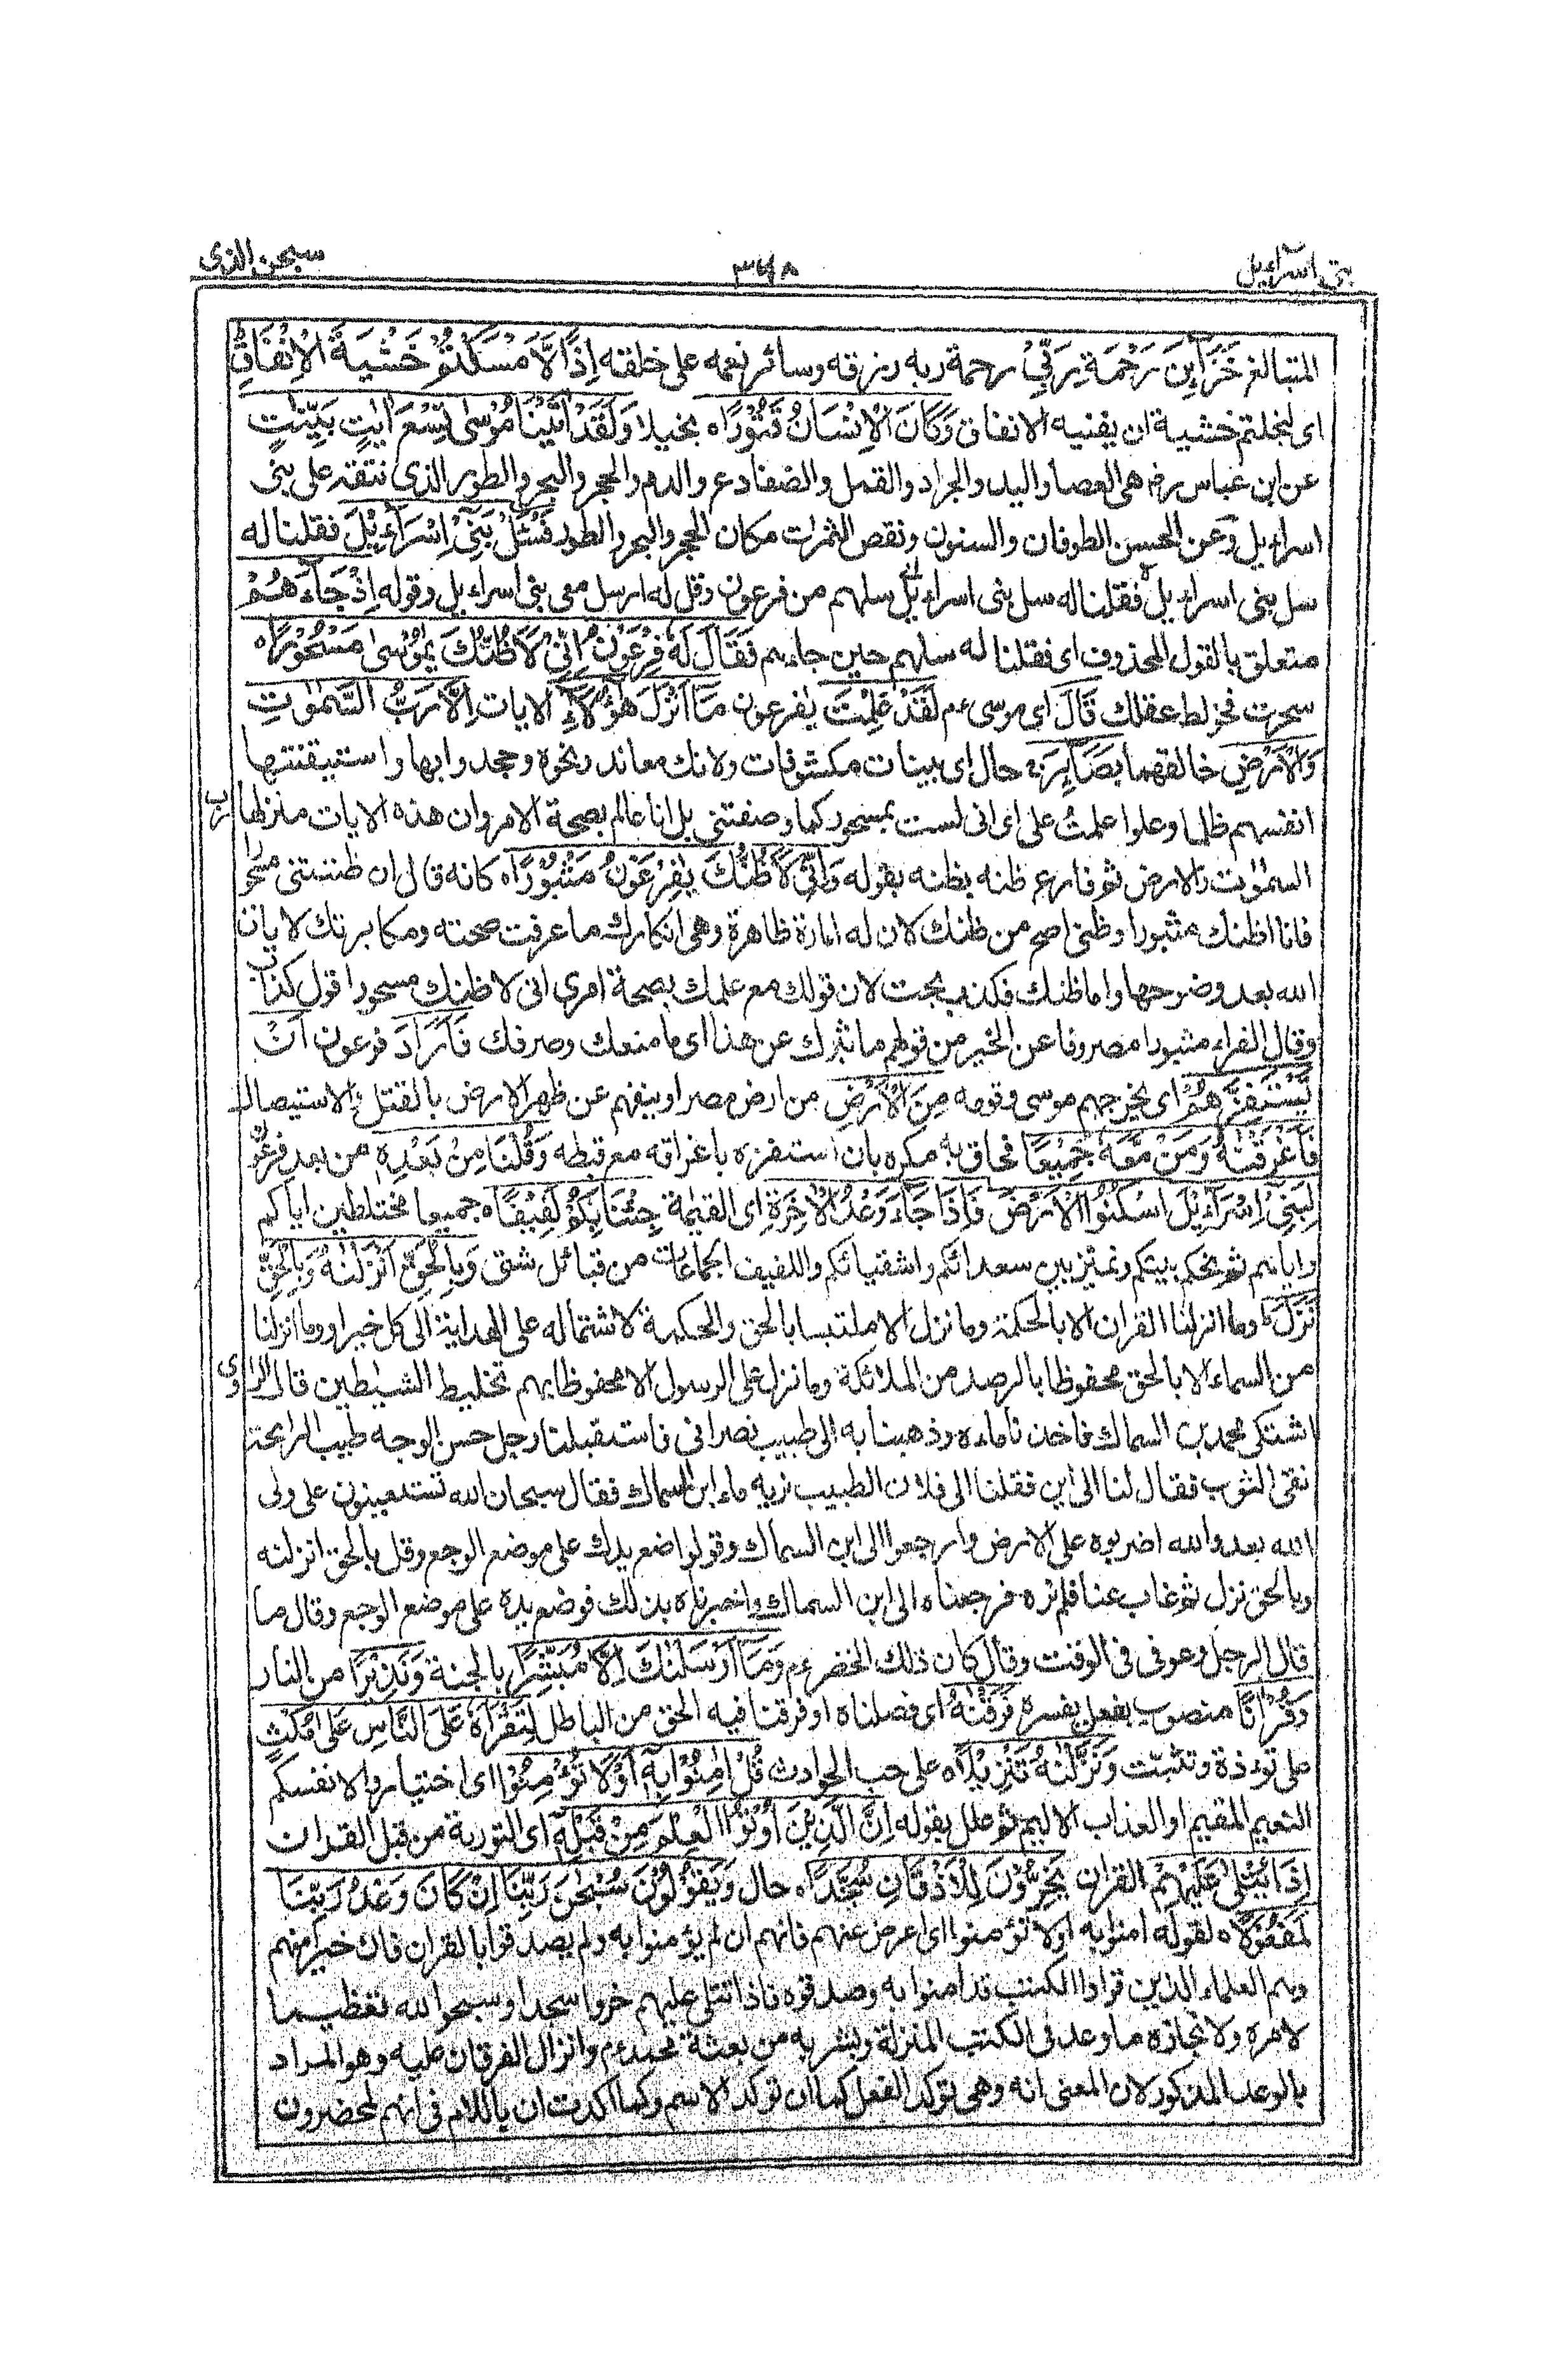 بنی اسرآءیل
٣٦٨
سبحن الذی
المتبالغ خَزَآئِنَ رَحْمَةِ رَبِّیْ رحمة ربه رزقه وسائر نعمه علی خلقه اِذًا لَّاَمْسَكْتُمْ خَشْیَةَ الْاِنْفَاقِ
ای لبخلتم خشیة ان یفنیه الانفاق وَكَانَ الْاِنْسَانُ قَتُوْرًاه بخیلا وَلَقَدْ اٰتَیْنَا مُوْسٰی تِسْعَ اٰیٰتٍ بَیِّنٰتٍ
عن ابن عباس رضم هی العصا والید والجراد والقمل والضفادع والدم والحجر والبحر والطور الذی نتقه علی بنی
اسراءیل وعن الحسن الطوفان والسنون ونقص الثمرات مكان الحجر والبحر والطور فَسْئَلْ بَنِیْ اِسْرَآءِیْلَ فقلنا له
سل بنی اسراءیل فقلنا له سل بنی اسراءیل ای سلهم من فرعون وقل له ارسل معی بنی اسراءیل وقوله اِذْ جَآءَهُمْ
متعلق بالقول المحذوف ای فقلنا له سلهم حین جاءهم فَقَالَ لَهٗ فِرْعَوْنُ اِنِّیْ لَاَظُنُّكَ یٰمُوْسٰی مَسْحُوْرًاه
سحرت فخولط عقلك قَالَ ای موسی عم لَقَدْ عَلِمْتَ یٰفرعون مَآ اَنْزَلَ هٰٓؤُلَآءِ الایات اِلَّا رَبُّ السَّمٰوٰتِ
وَالْاَرْضِ خالقهما بَصَآئِرَ حال ای بینات مكشوفات ولانك معاند ونحوه وجحدوا بها واستیقنتها
انفسهم ظلما وعلوا علمتُ علی ای انی لست بمسحور كما وصفتنی بل انا عالم بصحة الامر وان هذه الایات منزلها رب
السمٰوٰت والارض ثم قارع ظنه بظنه بقوله وَاِنِّیْ لَاَظُنُّكَ یٰفِرْعَوْنُ مَثْبُوْرًاه كانه قال ان ظننتنی مسحورا
فانا اظنك مثبورا وظنی اصح من ظنك لان له امارة ظاهرة وهی انكارك ما عرفت صحته ومكابرتك لایات
الله بعد وضوحها واما ظنك فكذب بحت لان قولك مع علمك بصحة امری انی لاظنك مسحورا قول كذاب
وقال الفراء مثبورا مصروفا عن الخیر من قولهم ما ثبرك عن هذا ای ما منعك وصرفك فَاَرَادَ فرعون اَنْ
یَّسْتَفِزَّهُمْ ای یخرجهم موسی وقومه مِنَ الْاَرْضِ من ارض مصر او ینفیهم عن ظهر الارض بالقتل والاستیصال
فَاَغْرَقْنٰهُ وَمَنْ مَّعَهٗ جَمِیْعًا فحاق به مكره بان استفزه باغراقه مع قبطه وَقُلْنَا مِنْۢ بَعْدِهٖ من بعد فرعون
لِبَنِیْٓ اِسْرَآءِیْلَ اسْكُنُوا الْاَرْضَ فَاِذَا جَآءَ وَعْدُ الْاٰخِرَةِ ای القیٰمة جِئْنَا بِكُمْ لَفِیْفًاه جمیعا مختلطین ایاكم
وایاهم ثم نحكم بینكم ونمیز بین سعدائكم واشقیائكم واللفیف الجماعات من قبائل شتی وَبِالْحَقِّ اَنْزَلْنٰهُ وَبِالْحَقِّ
نَزَلَ وما انزلنا القران الا بالحكمة وما نزل الا ملتبسا بالحق والحكمة لاشتماله علی الهدایة الی كل خیر او وما انزلنا
من السماء الا بالحق محفوظا بالرصد من الملائكة وما نزل علی الرسول الا محفوظا بهم تخلیط الشیٰطین قال الراوی
اشتكی محمد بن السماك فاخذنا ماءه وذهبنا به الی طبیب نصرانی فاستقبلنا رجل حسن الوجه طیب الرایحة
نقی الثوب فقال لنا الی این فقلنا الی فلان الطبیب نریه ماء ابن السماك فقال سبحان الله تستعینون علی ولی
الله بعدو الله اضربوه علی الارض وارجعوا الی ابن السماك وقولوا ضع یدك علی موضع الوجع وقل بالحق انزلنه
وبالحق نزل ثم غاب عنا فلم نره فرجعنا الی ابن السماك واخبرناه بذلك فوضع یده علی موضع الوجع وقال ما
قال الرجل وعوفی فی الوقت وقال كان ذلك الخضر عم وَمَآ اَرْسَلْنٰكَ اِلَّا مُبَشِّرًا بالجنة وَنَذِیْرًا من النار
وَقُرْاٰنًا منصوب بفعل یفسره فَرَقْنٰهُ ای فصلناه او فرقنا فیه الحق من الباطل لِتَقْرَاَهٗ عَلَی النَّاسِ عَلٰی مُكْثٍ
علی تؤدة وتثبت وَنَزَّلْنٰهُ تَنْزِیْلًاه علی حب الحوادث قُلْ اٰمِنُوْا بِهٖٓ اَوْ لَا تُؤْمِنُوْا ای اختیاروا لانفسكم
النعیم المقیم او العذاب الالیم ثم علل بقوله اِنَّ الَّذِیْنَ اُوْتُوا الْعِلْمَ مِنْ قَبْلِهٖٓ ای التوریة من قبل القران
اِذَا یُتْلٰی عَلَیْهِمْ القران یَخِرُّوْنَ لِلْاَذْقَانِ سُجَّدًاه حال وَیَقُوْلُوْنَ سُبْحٰنَ رَبِّنَآ اِنْ كَانَ وَعْدُ رَبِّنَا
لَمَفْعُوْلًاه لقوله امنوا به او لا تؤمنوا ای اعرض عنهم فانهم ان لم یؤمنوا به ولم یصدقوا بالقران فان خیرا منهم
وهم العلماء الذین قراوا الكتب قد امنوا به وصدقوه فاذا تتلی علیهم خروا سجدا وسبحوا لله تعظیما
لامره ولانجازه ما وعد فی الكتب المنزلة وبشر به من بعثة محمد عم وانزال الفرقان علیه وهو المراد
بالوعد المذكور لان المعنی انه وهی تؤكد الفعل كما ان تؤكد الاسم وكما اكدت ان باللام فی انهم لمحضرون